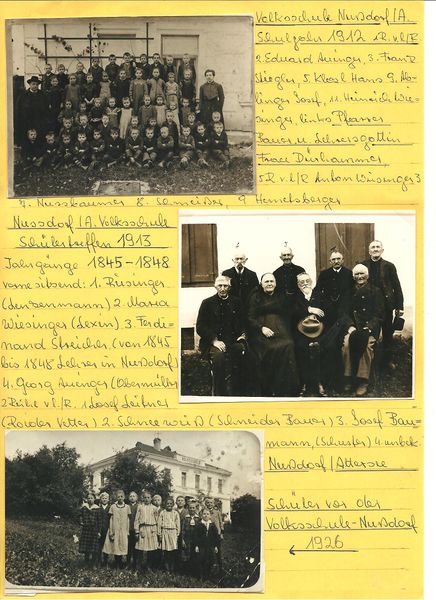 Volksschule Nußdorf/A.
Schuljahr 1912 2.R.v.l/R
2. Eduard Auinger, 3. Franz
Stiegler, 5. Klaus Hans 9. Ab-
linger Josef, 11. Heinrich Wie-
singer, links Pfarrer
Bauer u. Lehrersgattin
Frau Dürhammer
5.R v.l/R Anton Wiesinger 3
7. Nussbaumer 8. Schneider, 9 Hemetsberger
Nussdorf/A. Volksschule
Schülertreffen 1913
Jahrgänge 1845-1848
vorne sitzend: 1.
2. Maria
Wiesinger (Lexen) 3. Ferdi-
nand Streicher (von 1845
bis 1848 Lehrer in Nußdorf)
4. Georg Auinger (Obermüller)
2 Reihe v.l/R. 1 Josef Leitner
Vetter) 2. Schneeweiß (Schneider Bauer) 3. Josef Bau-
mann, (Schuster) 4. unbek.
Nußdorf/Attersee
Schüler vor der
Volksschule-Nußdorf
1926